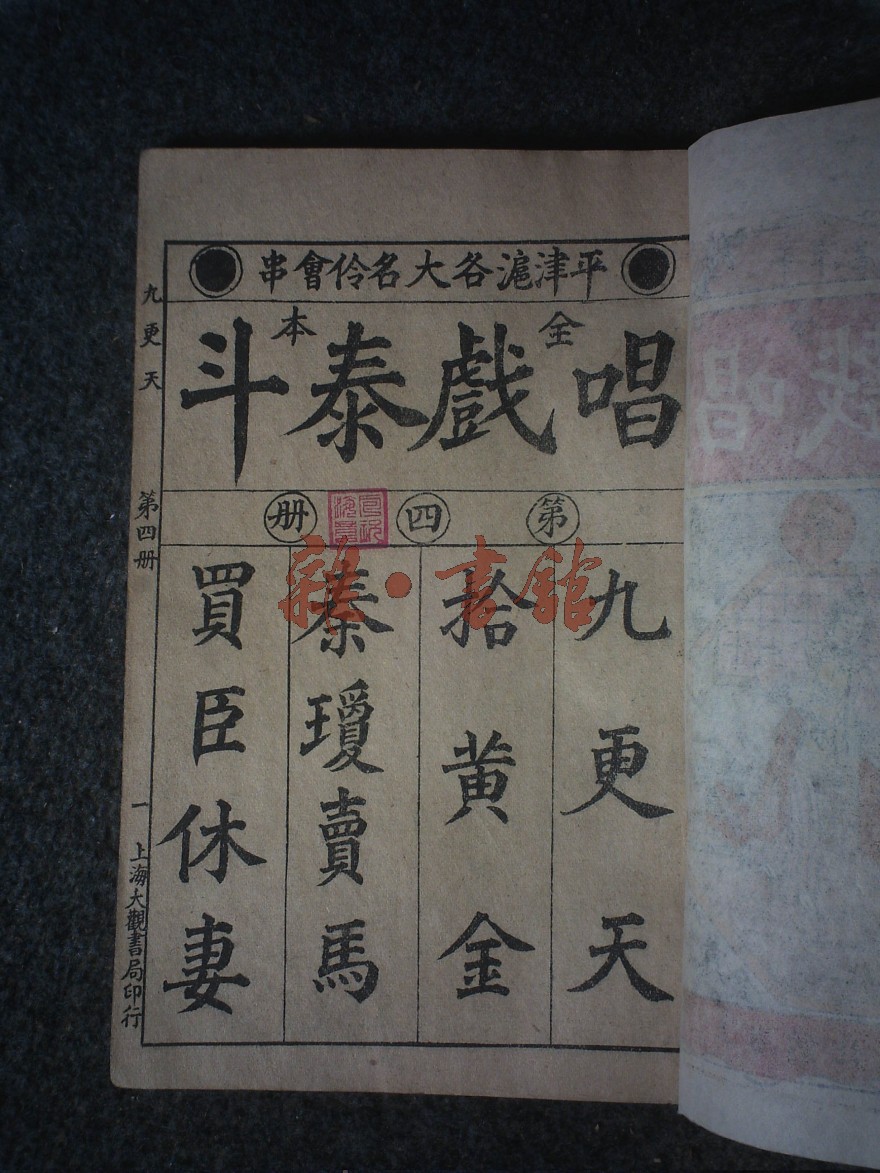 平津滬各大名伶會串
全本
唱戲泰斗
第四册
九更天
拾黄金
秦瓊賣馬
買臣休妻
九更天
第四册
一
上海大觀書局印行
雜·書館